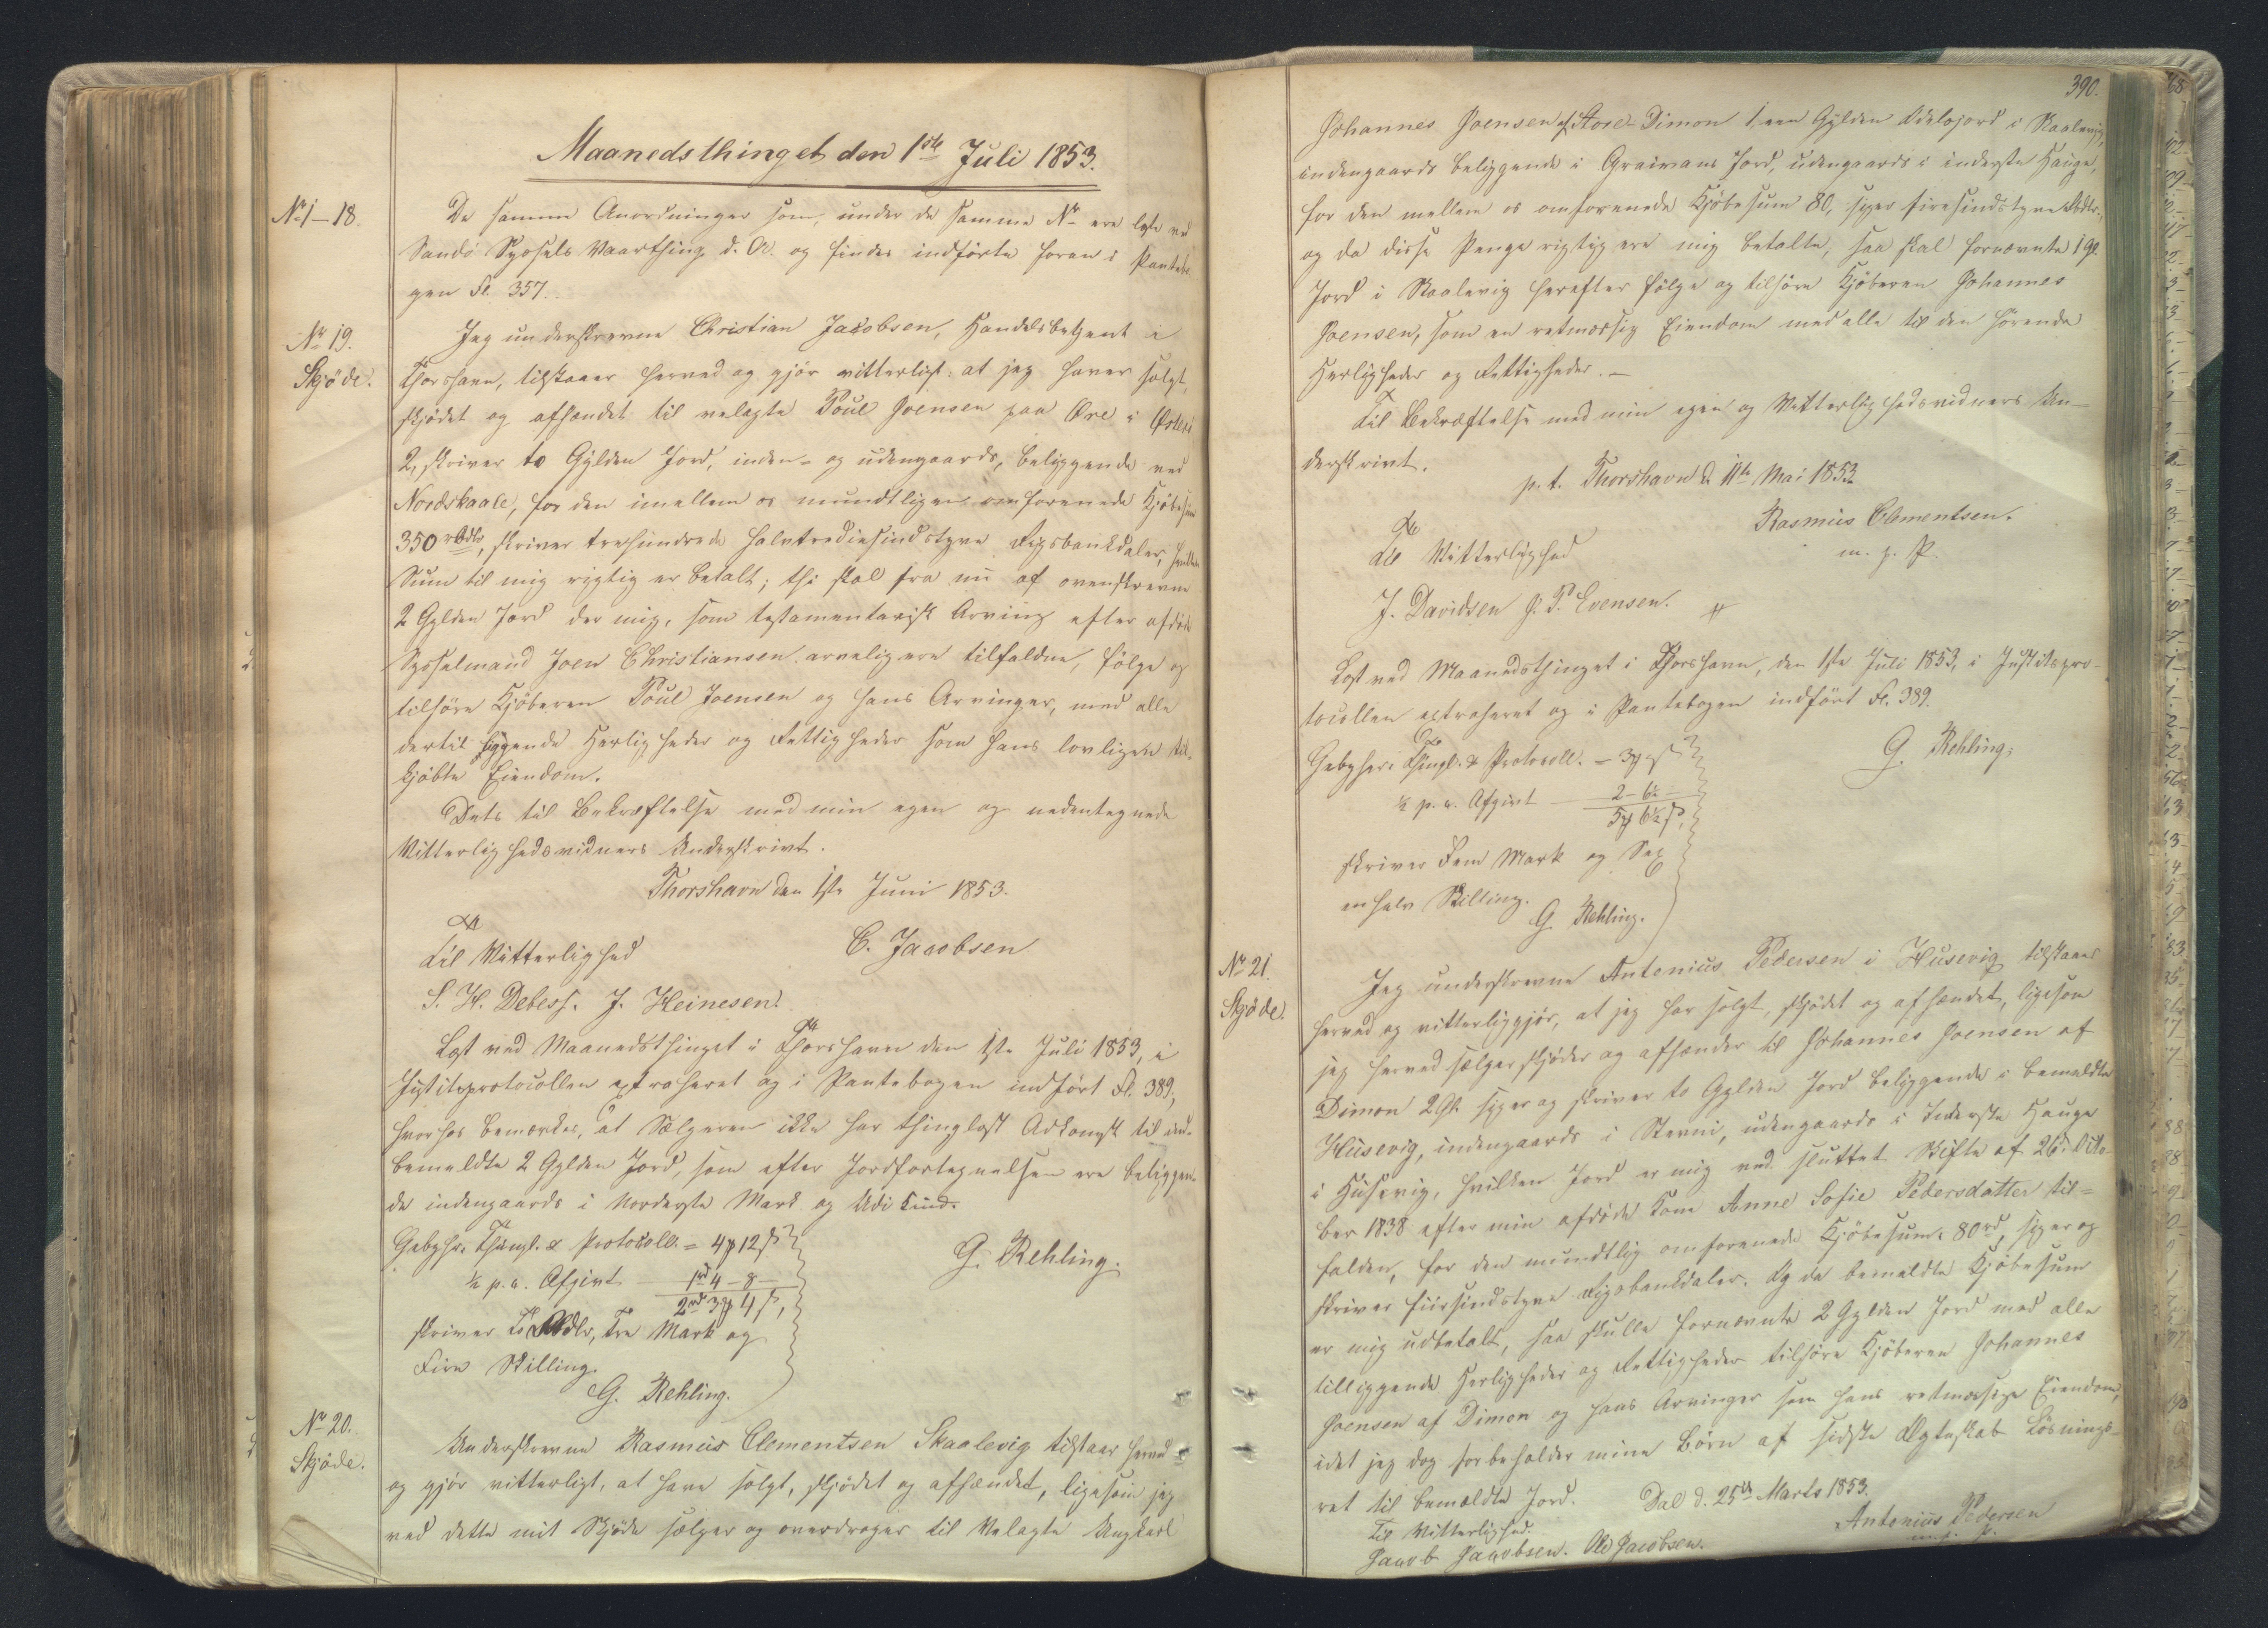 Maanedsthinget den 1ste Juli 1853.
No 1–18.
De samme Anordninger som, under de samme No ere læste ved
Sandø Syssels Vaarthing d. A. og findes indførte foran i Pantebo-
gen Fl. 357.
No 19.
Skjøde.
Jeg underskrevne Christian Jacobsen, Handelsbetjent i
Thorshavn, tilstaaer herved og gjør vitterligt: at jeg haver solgt,
skjødet og afhændet til velagte Poul Joensen paa Øre i Østerø
2, skriver to Gylden Jord, inden- og udengaards, beliggende ved
Nordskaale, for den imellem os mundtligen omforenede Kjøbesum
350 rbdlr, skriver trehundrede halvtrediesindstyve Rigsbankdaler, hvilken
Sum til mig rigtig er betalt; thi skal fra nu af ovenskrevne
2 Gylden Jord der mig, som testamentarisk Arving efter afdøde
Sysselmand Joen Christiansen arvelig ere tilfaldne, følge og
tilhøre Kjøberen Poul Joensen og hans Arvinger, med alle
dertil liggende Herligheder og Rettigheder som hans lovligen til-
kjøbte Eiendom.
Dets til Bekræftelse med min egen og nedentegnede
Vitterlighedsvidners Underskrivt.
Thorshavn den 1ste Juni 1853.
Til Vitterlighed
C. Jacobsen
S. H. Debess. J. Heinesen.
Læst ved Maanedsthinget i Thorshavn den 1ste Juli 1853, i
Justitsprotocollen extraheret og i Pantebogen indført Fl. 389,
hvorhos bemærkes, at Sælgeren ikke har thinglæst Adkomst til oven-
bemeldte 2 Gylden Jord, som efter Jordfortegnelsen ere beliggen-
de indengaards i Norderste Mark og Udi Lind.
Gebyhr: Thingl. & Protocoll. = 4 ₻ 12 ß
½ p. c. Afgivt 1 rd 4 – 8 –
2 rd 3 ₻ 4 ß,
skriver To Rbdlr, Tre Mark og
Fire Skilling.
G. Rehling.
G. Rehling.
No 20.
Skjøde.
Underskrevne Rasmus Clementsen Skaalevig tilstaar herved
og gjør vitterligt, at have solgt, skjødet og afhændet, ligesom jeg
ved dette mit Skjøde sælger og overdrager til Velagte Ungkarl
390.
Johannes Joensen af Store-Dimon 1, een Gylden Odelsjord i Skaalevig,
indengaards beliggende i Graivans Jord, udengaards i inderste Hauge,
for den mellem os omforenede Kjøbesum 80, siger firesindstyve Rbdlr,
og da disse Penge rigtig ere mig betalte, saa skal fornævnte 1 Gl.
Jord i Skaalevig herefter følge og tilhøre Kjøberen Johannes
Joensen, som en retmæssig Eiendom med alle til den hørende
Herligheder og Rettigheder. –
Til Bekræftelse med min egen og Vitterlighedsvidners Un-
derskrivt.
p. t. Thorshavn d. 11te Mai 1853
Rasmus Clementsen.
m. f. P.
Til Vitterlighed
J. Davidsen J. P. Evensen.
Læst ved Maanedsthinget i Thorshavn, den 1ste Juli 1853, i Justitspro-
tocollen extraheret og i Pantebogen indført Fl. 389.
G. Rehling,
Gebyhr: Thingl. & Protocoll. – 3 ₻ – ß
½ p. c. Afgivt 2 – 6½ –
5 ₻ 6½ ß,
skriver Fem Mark og Sex
en halv Skilling.
G. Rehling.
No 21.
Skjøde.
Jeg underskrevne Antenius Pedersen i Husevig tilstaaer
herved og vitterliggjør, at jeg har solgt, skjødet og afhændet, ligesom
jeg herved sælger skjøder og afhænder til Johannes Joensen af
Dimon 2 Gl. siger og skriver to Gylden Jord beliggende i bemeldte
Husevig, indengaards i Stevni, udengaards i Inderste Hauge
i Husevig, hvilken Jord er mig ved sluttet Skifte af 26d. Octo-
ber 1838 efter min afdøde Kone Anne Sofie Pedersdatter til-
falden, for den mundtlig omforenede Kjøbesum: 80 rd, siger og
skriver fiirsindstyve Rigsbankdaler. Og da bemeldte Kjøbesum
er mig udbetalt, saa skulle fornævnte 2 Gylden Jord med alle
tilliggende Herligheder og Rettigheder tilhøre Kjøberen Johannes
Joensen af Dimon og hans Arvinger som hans retmæssige Eiendom,
idet jeg dog forbeholder mine Børn af sidste Ægteskab Løsnings-
ret til bemældte Jord.
Dal d. 25de Marts 1853.
Til Vitterlighed.
Antenius Pedersen
m. f. P.
Jacob Jacobsen. Ole Jacobsen.